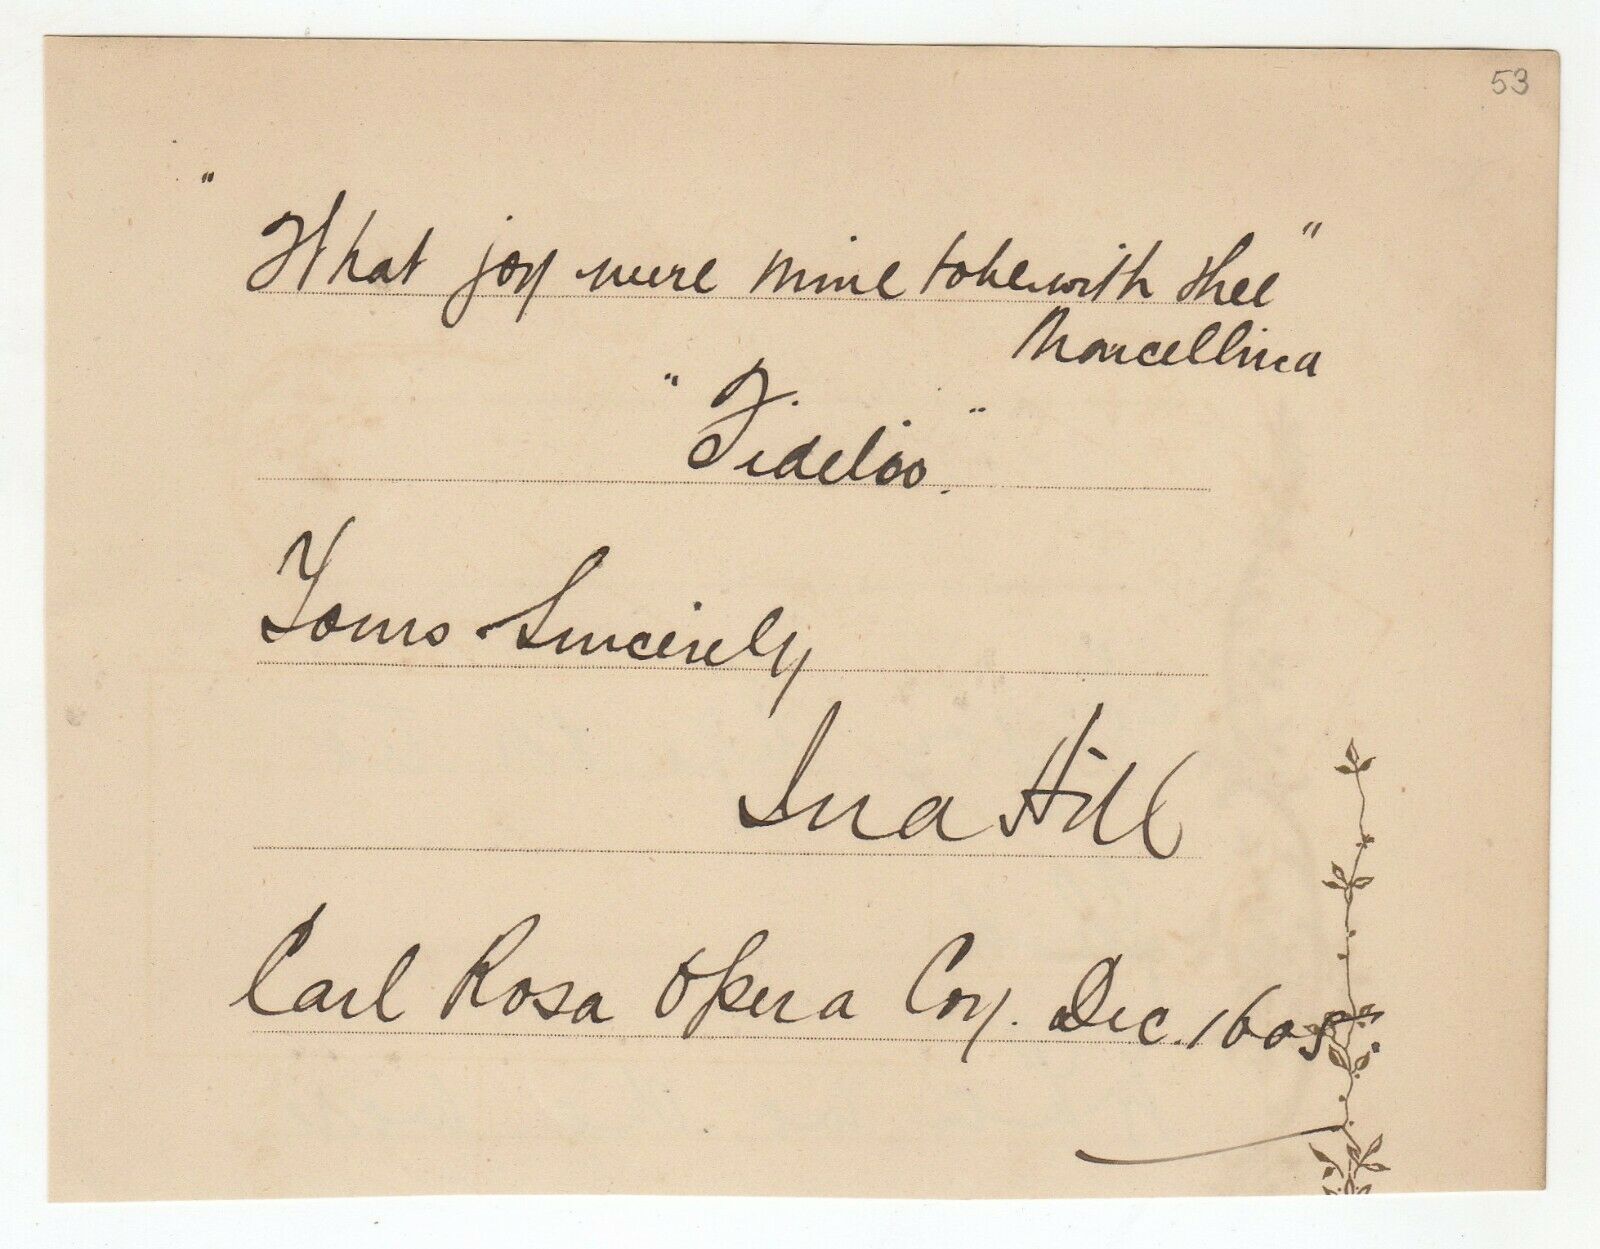 53
"What joy were mine to be with thee"
Marcellina
"Fidelio."
Yours Sincerely
Ina Hill
Carl Rosa Opera Coy. Dec. 1605.